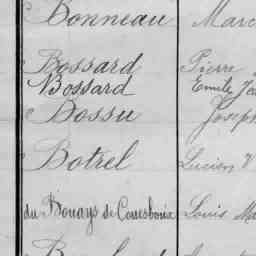 Bonneau Marc
Bossard Pierre
Bossard Emile Je
Bossu Joseph
Botrel Lucien V
du Bouays de Couesbouc Louis Ma